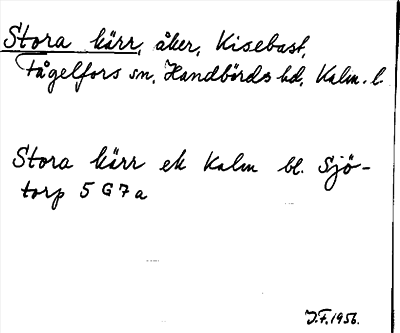 Stora kärr, åker, Kisebast,
Fågelfors sn, Handbörds hd, Kalm. l.
Stora kärr ek Kalm bl. Sjö-
torp 5 G 7 a
J.F. 1956.